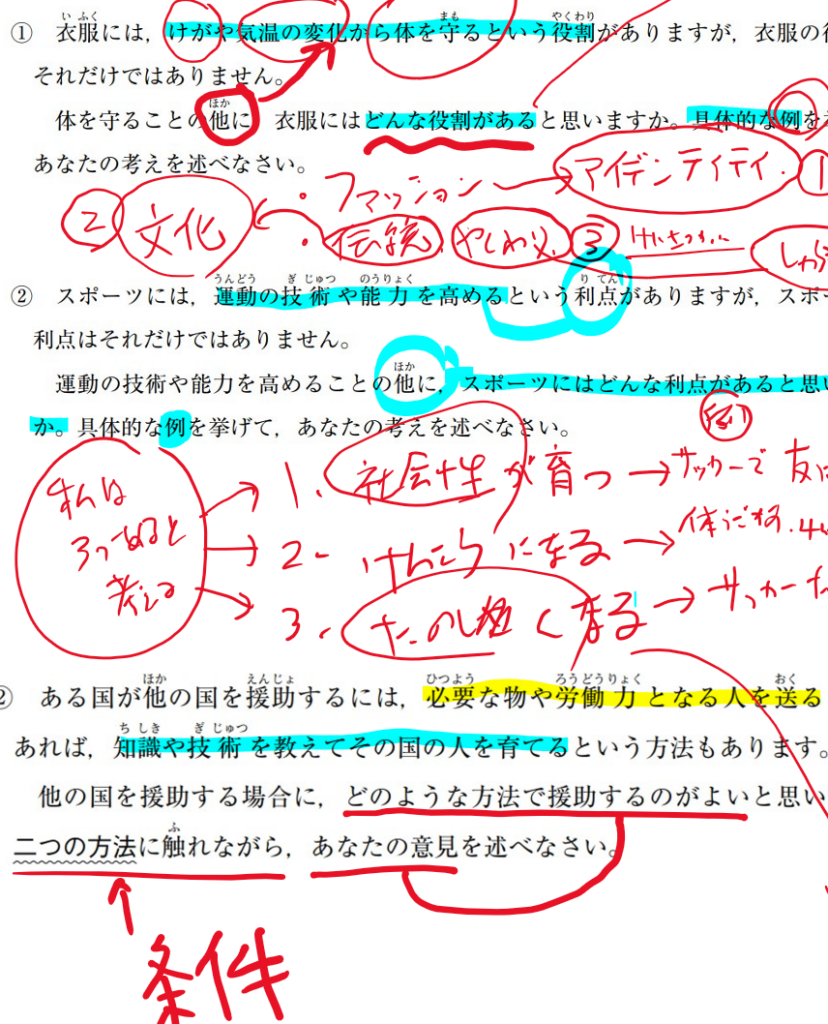 ① 衣服には，けがや気温の変化から体を守るという役割がありますが，衣服の役
それだけではありません。
体を守ることの他に 衣服にはどんな役割があると思いますか。具体的な例を
あなたの考えを述べなさい。
ファッション アイデンティティ. ①
② 文化 ・伝統 ③
② スポーツには，運動の技術や能力を高めるという利点がありますが，スポー
利点はそれだけではありません。
運動の技術や能力を高めることの他に，スポーツにはどんな利点があると思い
か。具体的な例を挙げて，あなたの考えを述べなさい。
例
私は
3つあると
考える
1. 社会性が育つ → サッカーで 友
2. けんこうになる → 体
3. たのしくなる → サッカー
② ある国が他の国を援助するには，必要な物や労働力となる人を送る
あれば，知識や技術を教えてその国の人を育てるという方法もあります。
他の国を援助する場合に，どのような方法で援助するのがよいと思い
二つの方法に触れながら，あなたの意見を述べなさい。
条件